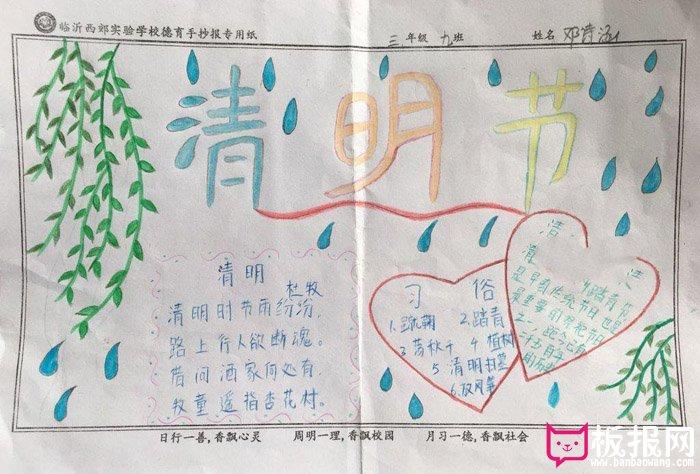 临沂西郊实验学校德育手抄报专用纸
三年级九班
姓名 邓诗涵
清明节
清明
杜牧
清明时节雨纷纷,
路上行人欲断魂。
借问酒家何处有,
牧童遥指杏花村。
习俗
1.蹴鞠 2.踏青
3荡秋千 4植树
5清明扫墓
6.放风筝
清
清
踏青节
日行一善,香飘心灵 周明一理,香飘校园 月习一德,香飘社会
板报网
www.banbaowang.com